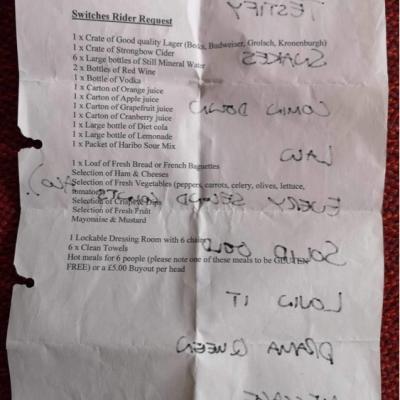 TESTIFY
Switches Rider Request
1 x Crate of Good quality Lager (Becks, Budweiser, Grolsch, Kronenburgh)
1 x Crate of Strongbow Cider
SNAKES
6 x Large bottles of Still Mineral Water
2 x Bottles of Red Wine
1 x Bottle of Vodka
1 x Carton of Orange juice
1 x Carton of Apple juice
1 x Carton of Grapefruit juice
COMING DOWN
1 x Carton of Cranberry juice
1 x Large bottle of Diet cola
1 x Large bottle of Lemonade
1 x Packet of Haribo Sour Mix
LAW
1 x Loaf of Fresh Bread or French Baguettes
Selection of Ham & Cheeses
Selection of Fresh Vegetables (peppers, carrots, celery, olives, lettuce,
tomatoes
EVERY SECOND COUNTS
Selection of Crisps
Selection of Fresh Fruit
Mayonnaise & Mustard
1 Lockable Dressing Room with 6 chairs
SOLID GOLD
6 x Clean Towels
Hot meals for 6 people (please note one of these meals to be GLUTEN
FREE) or a £5.00 Buyout per head
LOVIN IT
DRAMA QUEEN